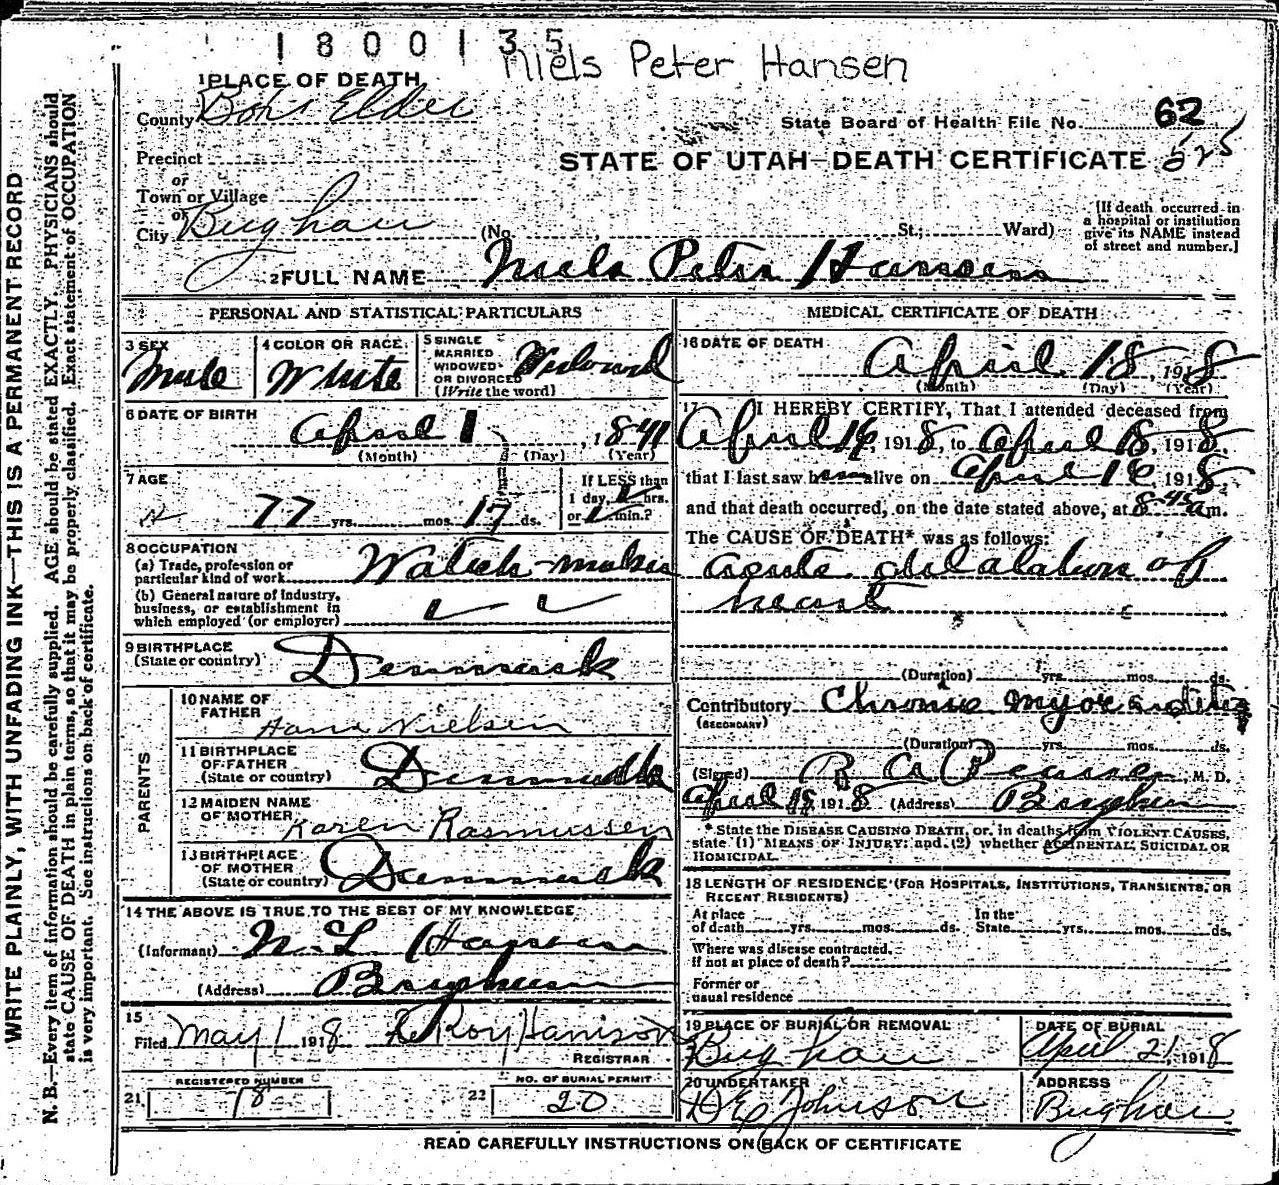 1800135
Niels Peter Hansen
1 PLACE OF DEATH
County Box Elder
State Board of Health File No. 62
Precinct
STATE OF UTAH—DEATH CERTIFICATE 525
or
Town or Village
or
City Brigham (No. St.; Ward)
[If death occurred in
a hospital or institution
give its NAME instead
of street and number.]
2 FULL NAME Niels Peter Hansen
PERSONAL AND STATISTICAL PARTICULARS
3 SEX Male
4 COLOR OR RACE White
5 SINGLE
MARRIED
WIDOWED
OR DIVORCED
(Write the word)
Widowed
6 DATE OF BIRTH
April 1, 1841
(Month) (Day) (Year)
7 AGE
77 yrs. mos. 17 ds.
If LESS than
1 day, hrs.
or min.?
8 OCCUPATION
(a) Trade, profession or
particular kind of work Watch-maker
(b) General nature of industry,
business, or establishment in
which employed (or employer)
9 BIRTHPLACE
(State or country) Denmark
PARENTS
10 NAME OF
FATHER
Hans Nielsen
11 BIRTHPLACE
OF FATHER
(State or country) Denmark
12 MAIDEN NAME
OF MOTHER Karen Rasmussen
13 BIRTHPLACE
OF MOTHER
(State or country) Denmark
14 THE ABOVE IS TRUE TO THE BEST OF MY KNOWLEDGE
(Informant) N. L. Hansen
(Address) Brigham
15
Filed May 1 1918
REGISTRAR
REGISTERED NUMBER
21 18
NO. OF BURIAL PERMIT
22 20
MEDICAL CERTIFICATE OF DEATH
16 DATE OF DEATH
April 18, 1918
(Month) (Day) (Year)
17 I HEREBY CERTIFY, That I attended deceased from
April 16, 1918, to April 18, 1918
that I last saw him alive on April 16, 1918
and that death occurred, on the date stated above, at 8-45 a m.
The CAUSE OF DEATH* was as follows:
acute dilatation of
heart
(Duration) yrs. mos. ds.
Contributory Chronic myocarditis
(SECONDARY)
(Duration) yrs. mos. ds.
(Signed) R A Pearse, M. D.
April 18, 1918 (Address) Brigham
* State the DISEASE CAUSING DEATH, or, in deaths from VIOLENT CAUSES,
state (1) MEANS OF INJURY; and (2) whether ACCIDENTAL, SUICIDAL OR
HOMICIDAL.
18 LENGTH OF RESIDENCE (FOR HOSPITALS, INSTITUTIONS, TRANSIENTS, OR
RECENT RESIDENTS)
At place
of death yrs. mos. ds.
In the
State yrs. mos. ds.
Where was disease contracted,
if not at place of death?
Former or
usual residence
19 PLACE OF BURIAL OR REMOVAL
Brigham
DATE OF BURIAL
April 21, 1918
20 UNDERTAKER
Johnson
ADDRESS
Brigham
READ CAREFULLY INSTRUCTIONS ON BACK OF CERTIFICATE
WRITE PLAINLY, WITH UNFADING INK—THIS IS A PERMANENT RECORD
N. B.—Every item of information should be carefully supplied. AGE should be stated EXACTLY. PHYSICIANS should
state CAUSE OF DEATH in plain terms, so that it may be properly classified. Exact statement of OCCUPATION
is very important. See instructions on back of certificate.